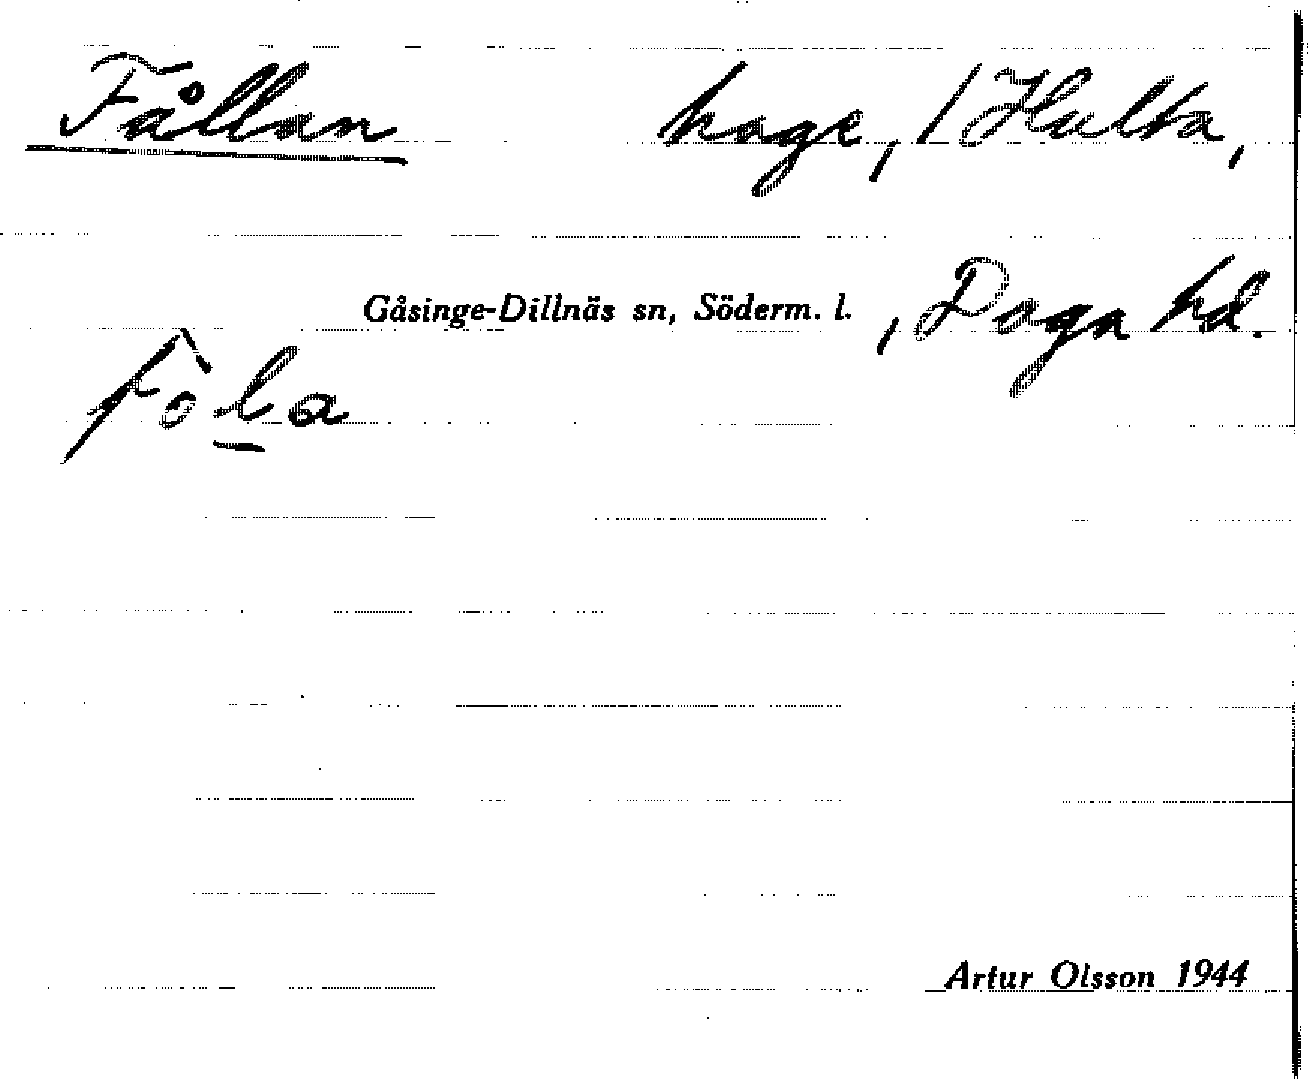 Fållan hage, / Hulta,
Gåsinge-Dillnäs sn, Söderm. l. , Daga hd.
fòl̲a
Artur Olsson 1944